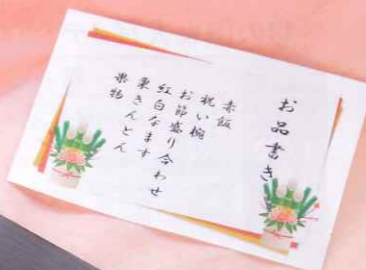 お品書き
赤飯
祝い椀
お節盛り合わせ
紅白なます
栗きんとん
果物